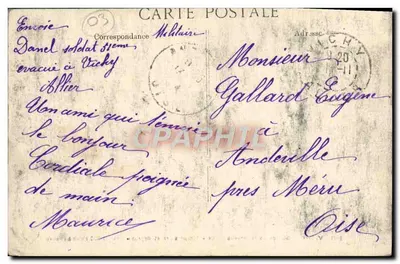 (03)
CARTE POSTALE
Correspondance
Militaire
Adresse
Envoie
Danel soldat 51eme
évacué à Vichy
Allier
Un ami qui t'envoie
le bonjour
Cordiale poignée
de main
Maurice
VICHY
20
Monsieur
Gallard Eugène
à
Andeville
près Méru
Oise
CPRPHOTO